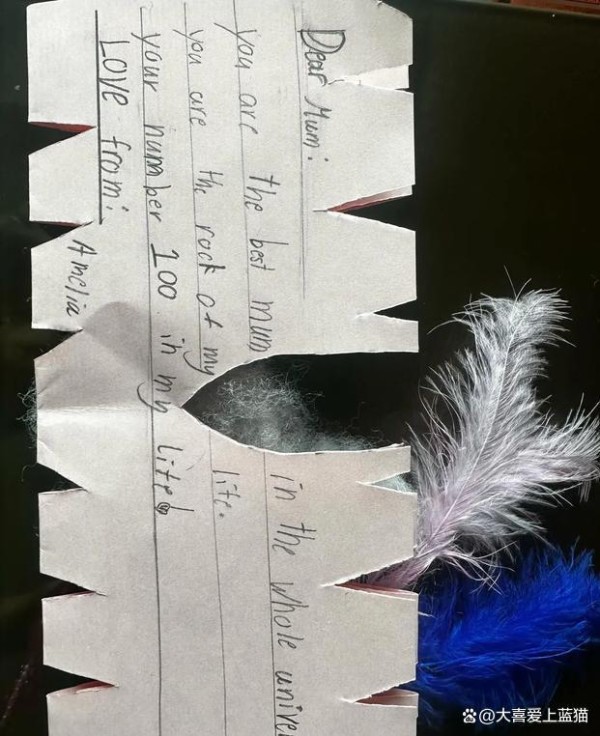 Dear Mum:
you are the best mum in the whole unive
you are the rock of my life.
your number 100 in my life!
Love from:
Amelia
@大喜爱上蓝猫